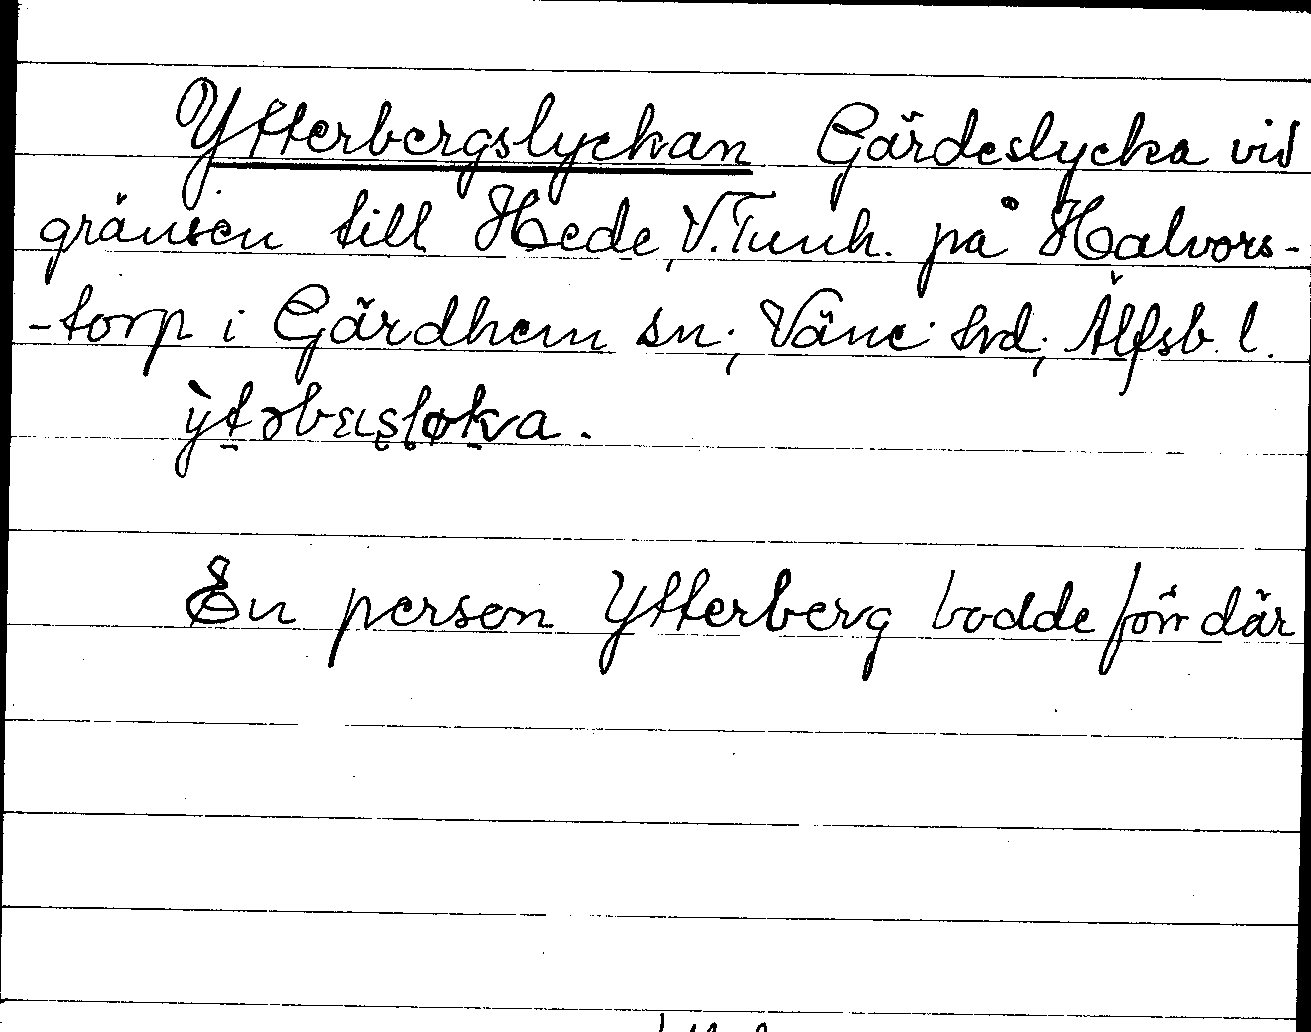 Ytterbergslyckan Gärdeslycka vid
gränsen till Hede, V. Tunh. på Halvors-
-torp i Gärdhem sn; Väne hrd; Älfsb. l.
En person Ytterberg bodde förr där